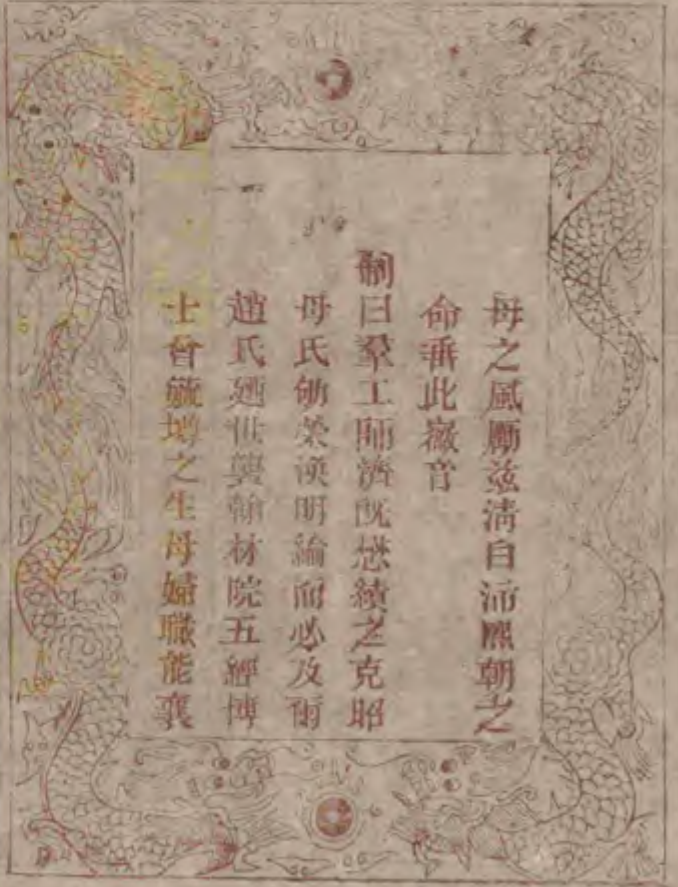 母之風勵茲清白沛熙朝之
命垂此徽音
制曰羣工師濟旣懋績之克昭
母氏劬勞渙明綸而必及爾
趙氏廼世襲翰林院五經博
士曾毓墫之生母婦職能襄